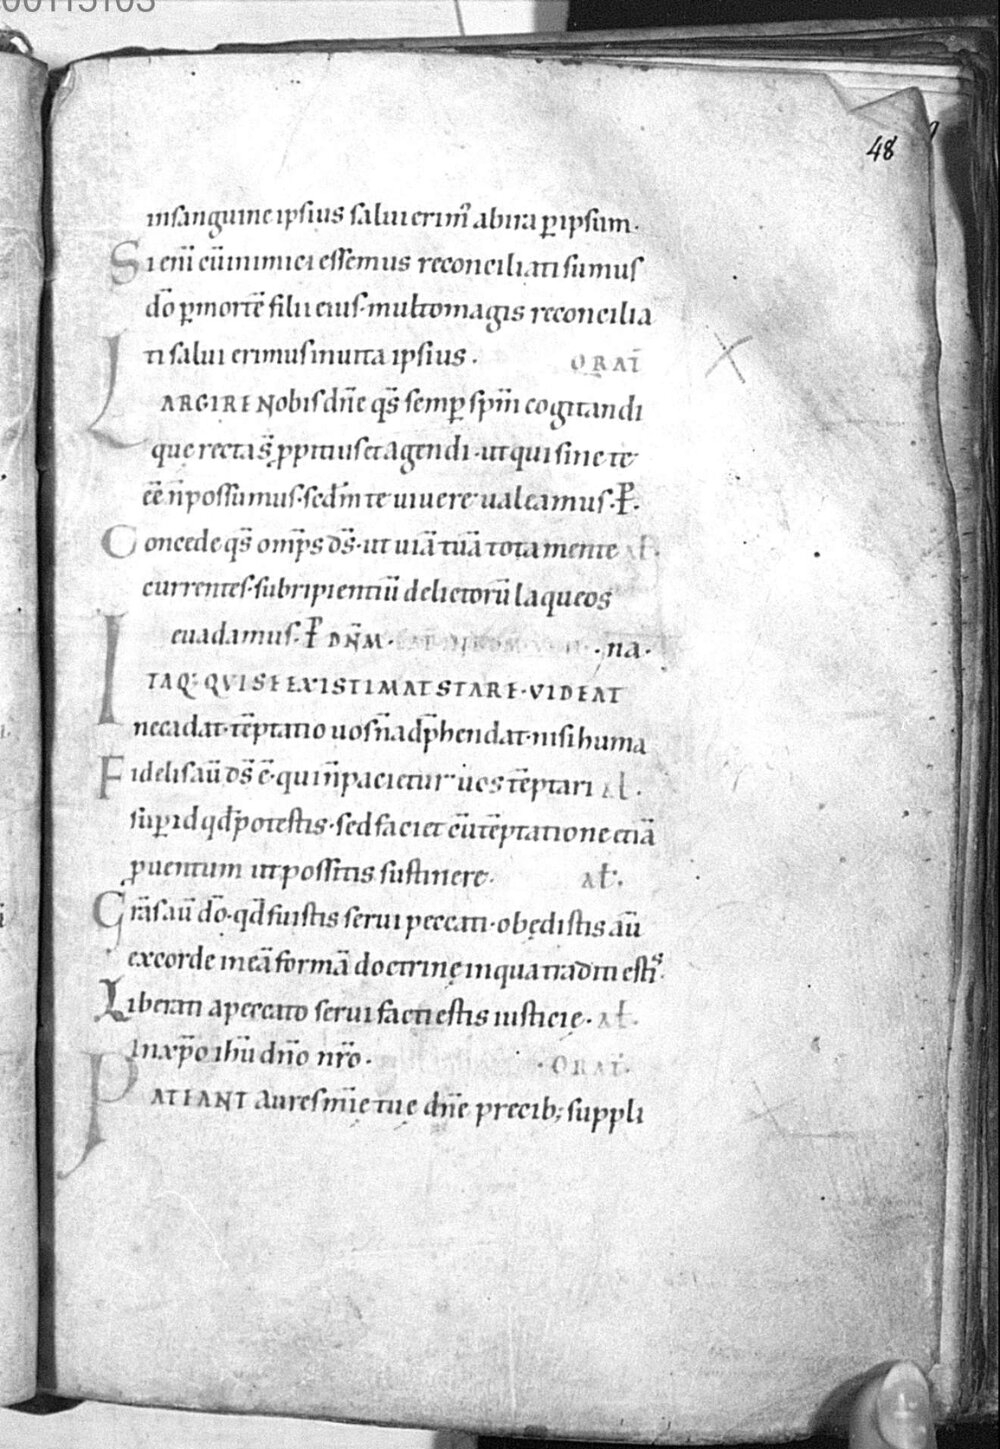 00115103
48
insanguine ipsius salui erim᷒ abira p̱ipsum·
Si eni̅ cu̅inimici essemus reconciliati sumus
do̅ p̱morte̅ filii eius·multomagis reconcilia
ti salui erimusinuita ipsius· ORAT̅
LARGIRE Nobisdn̅e qs̅ semp̱ spm̅ cogitandi
quę rectas̅ p̱pitiusetagendi·utquisinete
ee̅ n̅possumus·sedm̅te uiuere ualeamus·P̱·
Concede qs̅ omp̅s ds̅·ut uia̅ tua̅ tota mente al̅·
currentes·subripientiu̅ delictoru̅ laqueos
euadamus·P̱ DN̅M·
·na·
ITAQ: QVI SE EXISTIMAT STARE·VIDEAT
necadat·te̅ptatio uosn̅adp̅hendat·nisihuma
Fidelisau̅ ds̅ e̅·quin̅pacietur uos te̅ptari al̅·
sup̱id qd̅potestis·sed faciet cu̅te̅ptatione etia̅
p̱uentum ut possitis sustinere· al̅·
Gra̅sau̅ do̅·qd̅ fuistis serui peccati·obedistis au̅
excorde inea̅ forma̅ doctrinę inquatraditi esti᷒·
Liberati apeccato serui facti estis iusticię· al̅·
Inxp̅o ihu̅ dn̅o nr̅o· ·ORAT̅·
PATEANT aures mi̅ę tuę dn̅e precib; suppli